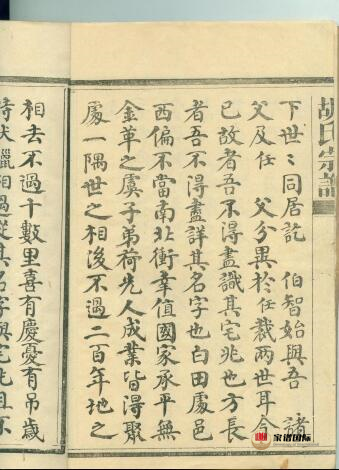 胡氏宗譜
下世〻同居訖　伯智始與吾　諸
父及任　父分異於任裁兩世耳今
已故者吾不得盡識其宅兆也方長
者吾不得盡詳其名字也白田處邑
西偏不當南北衝幸值國家承平無
金革之虞子弟荷先人成業皆得聚
處一隅世之相後不過二百年地之
相去不過十數里喜有慶憂有吊歲
時伏臘相過從其名字與宅兆且不
家谱国际